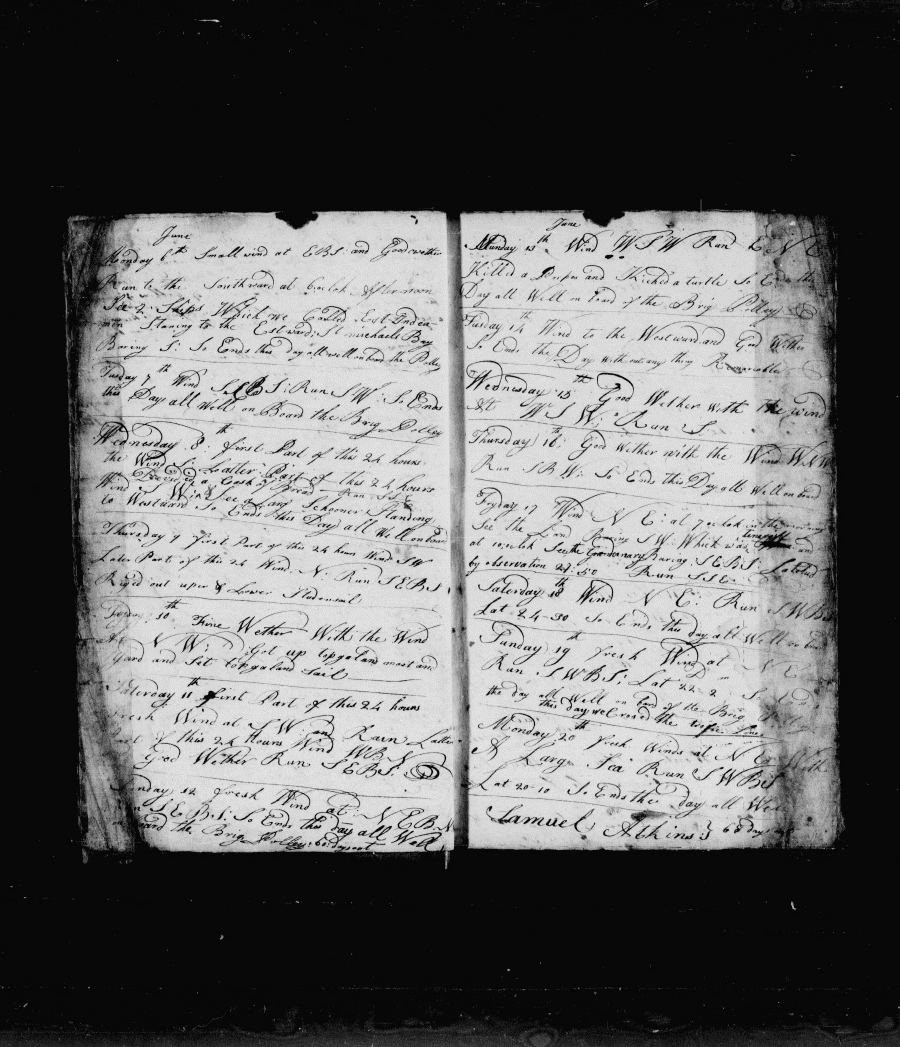 June
Monday 6th Small wind at EBS and Good wether
Run to the Southward at 6 oclok Afternoon
See 2 Ships Which we Called East Indea
men Staning to the Eastward: St michaels
Baring S: So Ends this day all well onbord the Polley
Tusday 7th Wind SSBS: Run SW: So Ends
this Day all Well on Board the Brig Polley
Wednesday 8: first Part of this 24 hours
the Wind S: Latter Part of this 24 hours
Wind W: See a Schooner Standing
to Westward So Ends this Day all Well onbord
Thursday 9 first Part of this 24 hours Wind SW
Later Part of this 24 Wind N: Run SEBS
Riged out uper & Lower Studensail
Fryday 10th Fine Wether With the Wind
At NW: Got up topgalan mast and
Yard and Set topgaland Sail
Saturday 11th first Part of this 24 hours
fresh Wind at SW and Rain Latter
Part of this 24 hours Wind WBS
Good Wether Run SEBS:
Sunday 12 fresh Wind at: NEBN
Run SEBS: So Ends this Day all Well
onbord the Brig Polley: 60 days out
June
Munday 13th Wind WSW Run
Killed a and a turtle So Ends the
Day all Well on bord of the Brig Polley
Tusday 14 Wind to the Westward and Good Wether
So Ends the Day without any thing Remarcable
Wednesday 15th Good Wether With the wind
At WSW: Run S
Thursday 16th: God Wether with the Wind
Run SBW: So Ends this Day all Well on bord
Fryday 17 Wind NE: at 7 oclok in the morning
See the Land Baring SW: Which was teneriff and
at 10 oclok See the Baring: SEBS: Latetud
by observation 27:50 Run SSE
Saturday 18th Wind NE: Run SWBS
Lat 24-30 So Ends this day all Well on bord
Sunday 19th fresh Wind at
Run SWBS: Lat 22-2 So
the day all Well on bord of the Brig
this day we Crosed the
Monday 20th fresh Winds at NE With
A Large Sea Run SWBS
Lat 20-10 So Ends the day all Well
Samuel Atkins 68 days